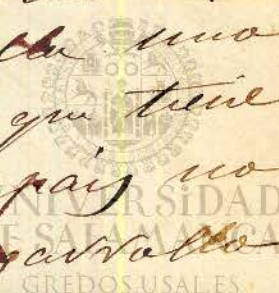 uno
que tiene
pais no
UNIVERSIDAD
DE SALAMANCA
GREDOS.USAL.ES